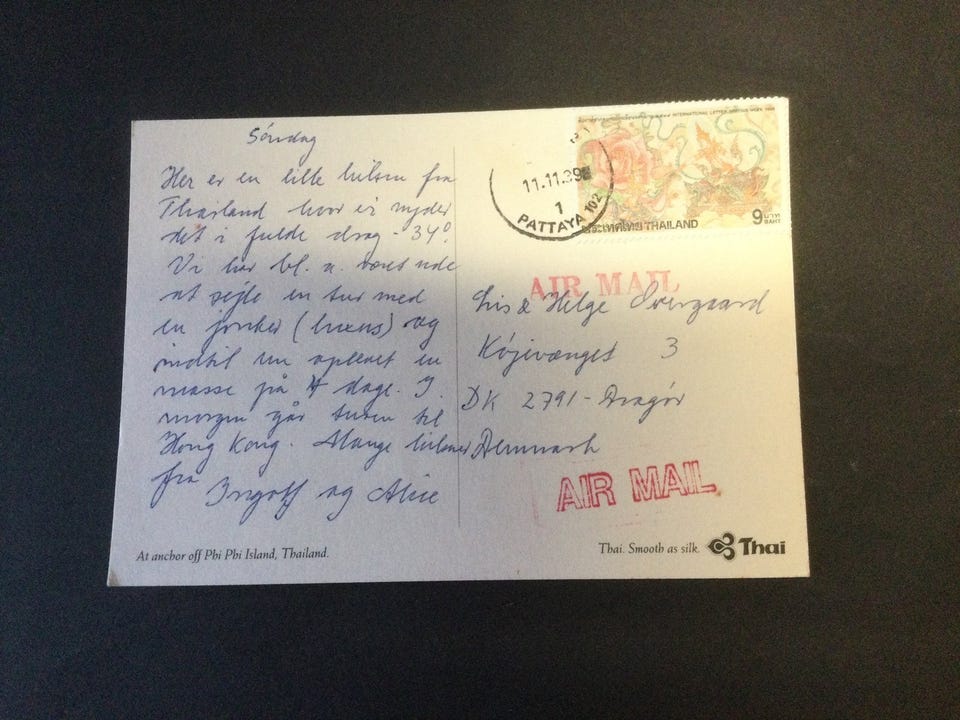 Søndag
Her er en lille hilsen fra
Thailand hvor vi nyder
det i fulde drag - 34°.
Vi har bl. a. været ude
at sejle en tur med
en jonker (luxus) og
indtil nu oplevet en
masse på 4 dage. I
morgen går turen til
Hong Kong. Mange hilsner
fra
Ingolf og Alice
At anchor off Phi Phi Island, Thailand.
INTERNATIONAL LETTER WRITING WEEK
11.11.
1
PATTAYA 102
ประเทศไทย THAILAND
9 บาท
BAHT
AIR MAIL
& Helge
Køjevænget 3
DK 2791 - Dragør
Denmark
AIR MAIL
Thai. Smooth as silk. Thai